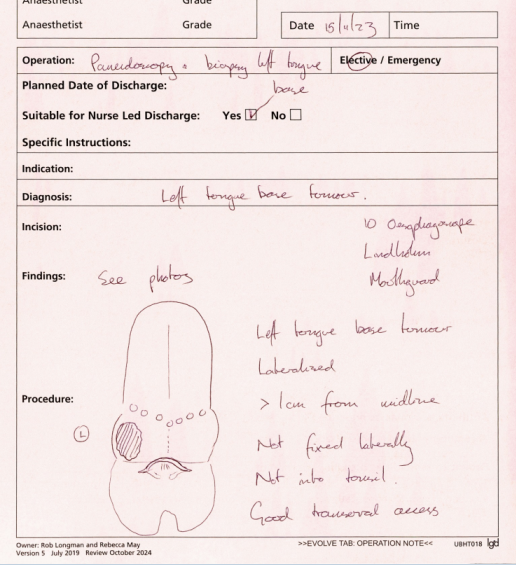 Anaesthetist Grade
Anaesthetist Grade
Date 15/11/23 Time
Operation: Panendoscopy + biopsy left tongue base
Elective / Emergency
Planned Date of Discharge:
Suitable for Nurse Led Discharge: Yes ☑ No ☐
Specific Instructions:
Indication:
Diagnosis: Left tongue base tumour.
Incision:
10 Oesophagoscope
Lindholm
Mouthguard
Findings: See photos
Left tongue base tumour
Lateralised
Procedure:
> 1cm from midline
L
Not fixed laterally
Not into tonsil.
Good transoral access
Owner: Rob Longman and Rebecca May
Version 5 July 2019 Review October 2024
>>EVOLVE TAB: OPERATION NOTE<<
UBHT018 lgtd